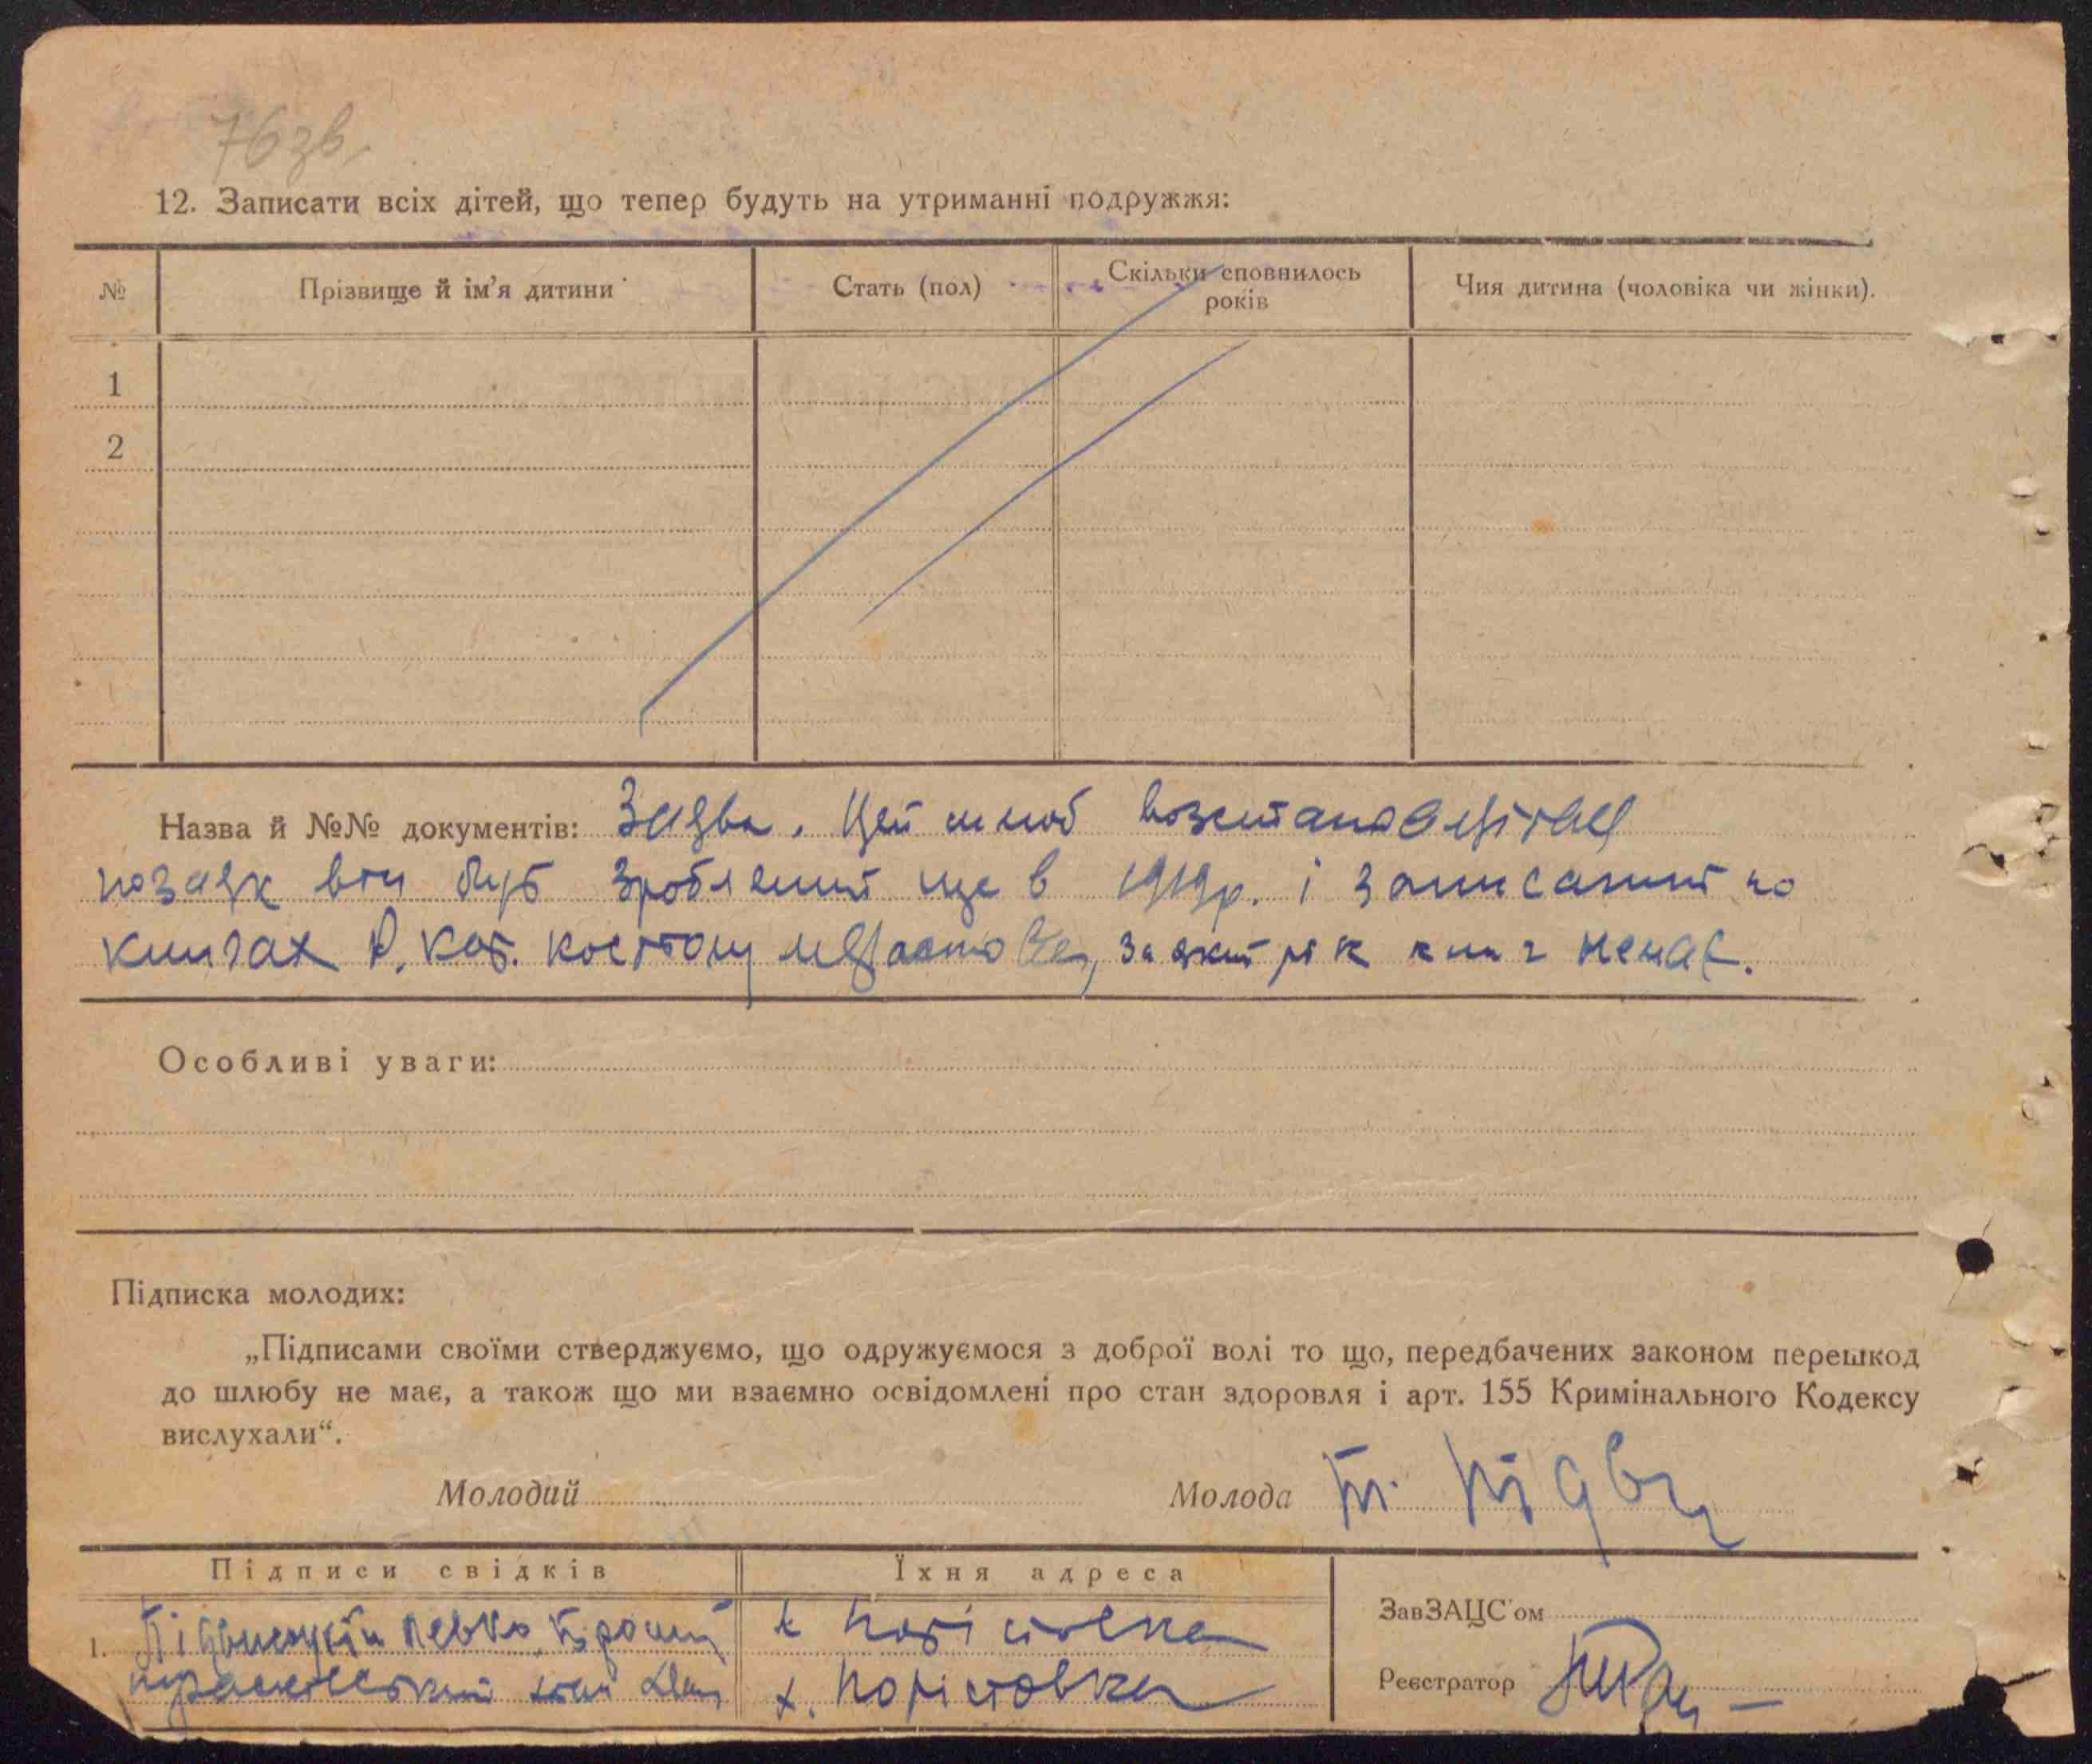 76 зв.
12. Записати всіх дітей, що тепер будуть на утриманні подружжя:
№ Прізвище й ім'я дитини Стать (пол) Скільки сповнилось років Чия дитина (чоловіка чи жінки).
1
2
Назва й №№ документів: Заява. Цей шлюб
позаяк він був зроблений ще в 1919р. і записаний по
книгах Р. Кат. костьолу за який рік книг немає.
Особливі уваги:
Підписка молодих:
„Підписами своїми стверджуємо, що одружуємося з доброї волі то що, передбачених законом перешкод
до шлюбу не має, а також що ми взаємно освідомлені про стан здоровля і арт. 155 Кримінального Кодексу
вислухали“.
Молодий Молода
Підписи свідків Їхня адреса
ЗавЗАЦС'ом
1. Левко х
х.
Реєстратор